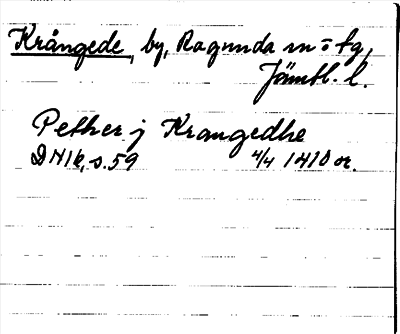 Krångede, by, Ragunda sn o tg,
Jämtl. l.
Pether j Krangedhe
DN16, s. 59 4/4 1410 or.